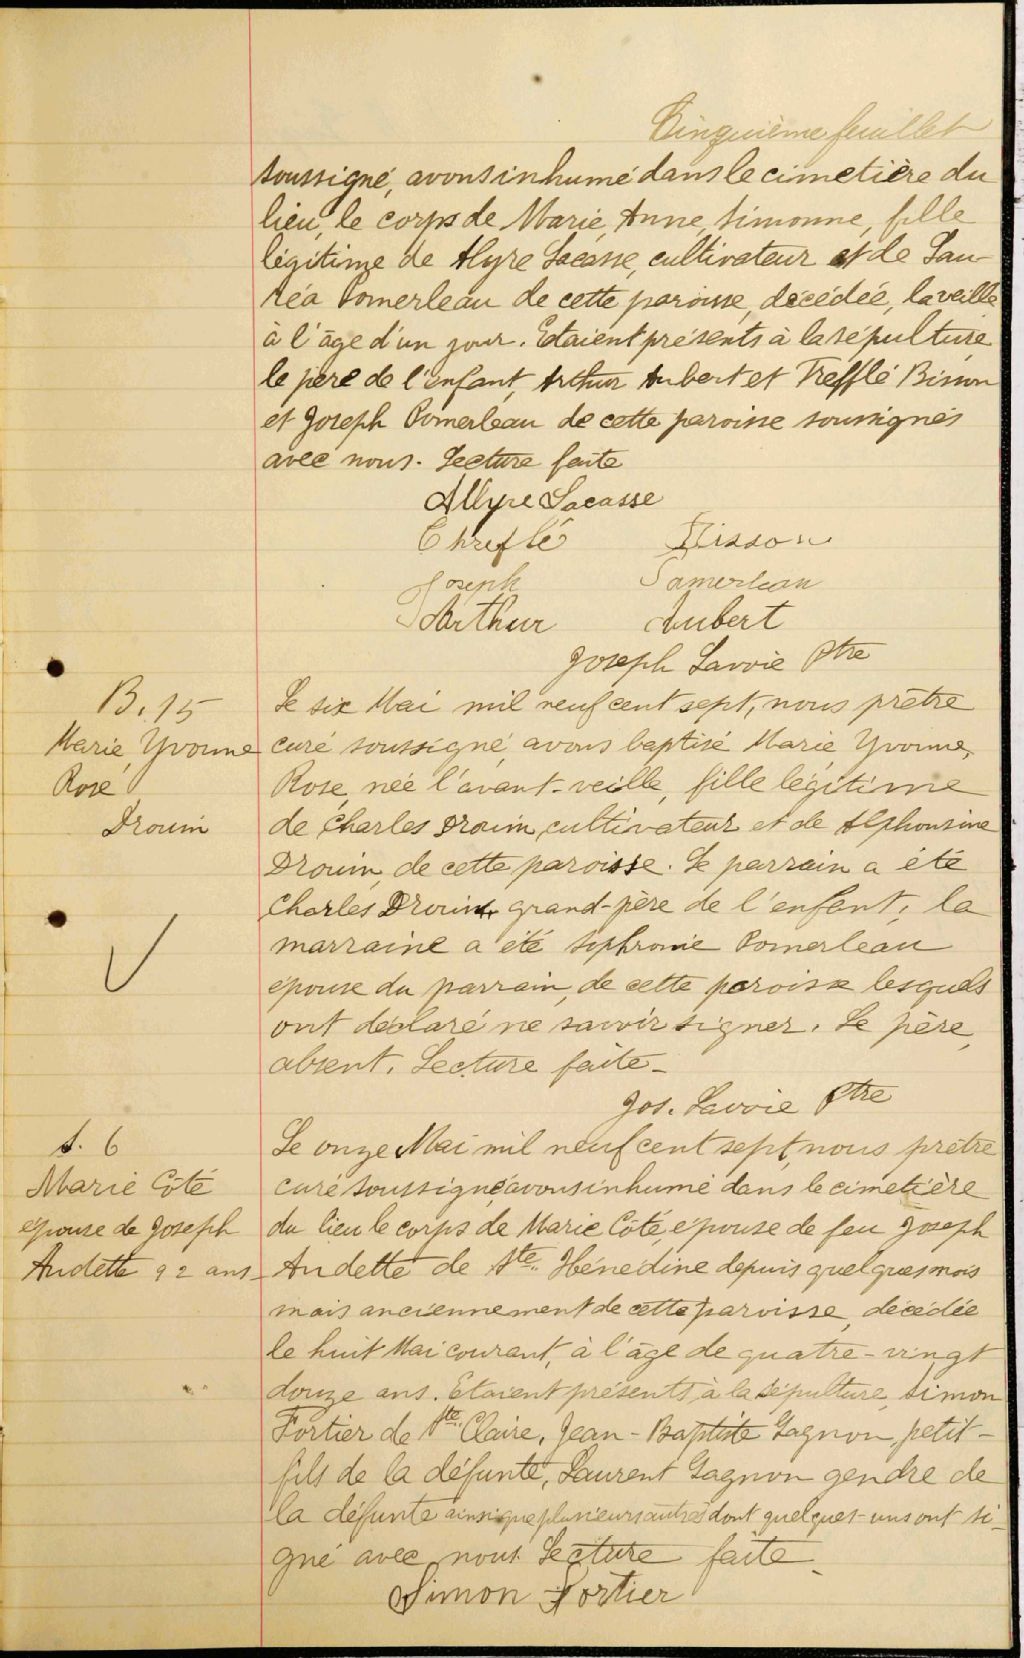 Cinquième feuillet
soussigné, avons inhumé dans le cimetière du
lieu, le corps de Marie, Anne, Simonne, fille
légitime de Alyre Lacasse, cultivateur et de Lau-
réa Pomerleau de cette paroisse, décédée, la veille
à l'âge d'un jour. Etaient présents à la sépulture
le père de l'enfant, Arthur Aubert et Trefflé Bisson
et Joseph Pomerleau de cette paroisse soussignés
avec nous. Lecture faite
Allyre Lacasse
Threflé Bisson
Joseph Pamerleau
Arthur Aubert
Joseph Lavoie Ptre
B. 15
Marie, Yvonne
Rose
Drouin
Le six Mai mil neuf cent sept, nous prêtre
curé soussigné, avons baptisé Marie, Yvonne,
Rose, née l'avant-veille, fille légitime
de Charles Drouin, cultivateur et de Alphonsine
Drouin, de cette paroisse. Le parrain a été
Charles Drouin, grand-père de l'enfant; la
marraine a été Sophronie Pomerleau
épouse du parrain, de cette paroisse lesquels
ont déclaré ne savoir signer. Le père,
absent. Lecture faite-
Jos. Lavoie Ptre
S. 6
Marie Côté
épouse de Joseph
Audette 92 ans-
Le onze Mai mil neuf cent sept, nous prêtre
curé soussigné, avons inhumé dans le cimetière
du lieu le corps de Marie Côté, épouse de feu Joseph
Audette de Ste. Hénédine depuis quelques mois
mais anciennement de cette paroisse, décédée
le huit Mai courant, à l'âge de quatre-vingt
douze ans. Etaient présents, à la sépulture, Simon
Fortier de Ste. Claire, Jean-Baptiste Gagnon, petit-
fils de la défunte, Laurent Gagnon gendre de
la défunte ainsi que plusieurs autres dont quelques-uns ont si-
gné avec nous. Lecture faite-
Simon Fortier